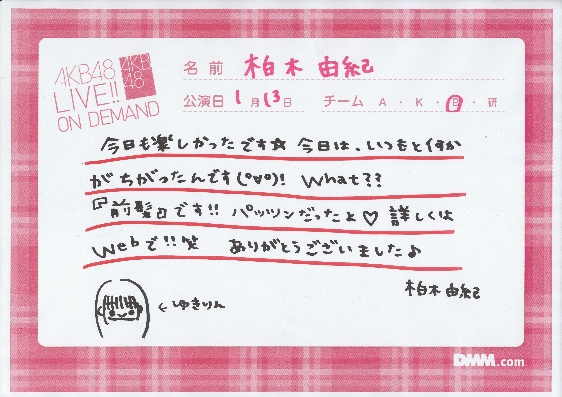 AKB48
LIVE!!
ON DEMAND
AKB
48
名前 柏木由紀
公演日 1月13日 チーム A・K・B・研
今日も楽しかったです☆ 今日は、いつもと何か
がちがったんです(°∀°)! What??
『前髪』です!! パッツンだったと♡ 詳しくは
Webで!!笑 ありがとうございました♪
柏木由紀
←ゆきりん
DMM.com